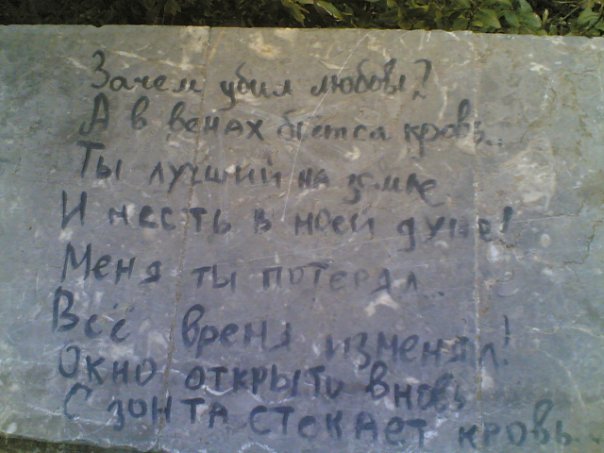 Зачем убил любовь?
А в венах бьется кровь..
Ты лучший на земле
И месть в моей душе!
Меня ты потерял..
Всё время изменял!
Окно открыто вновь
С зонта стекает кровь...